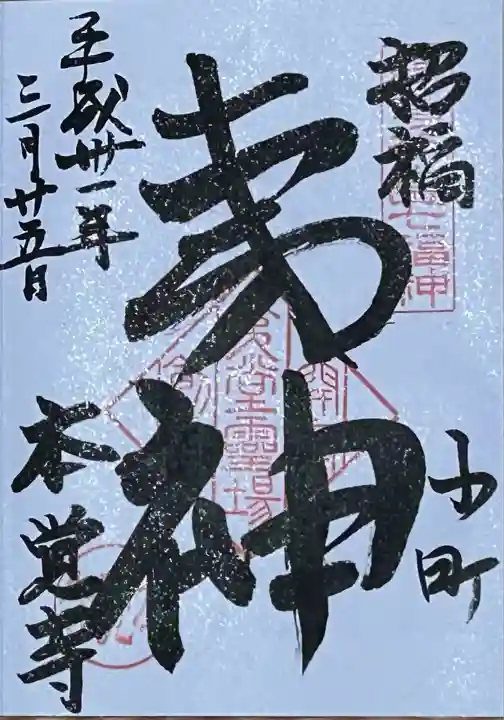 招福
七福神
夷神
小町
平成卅一年
三月廿五日
本覚寺